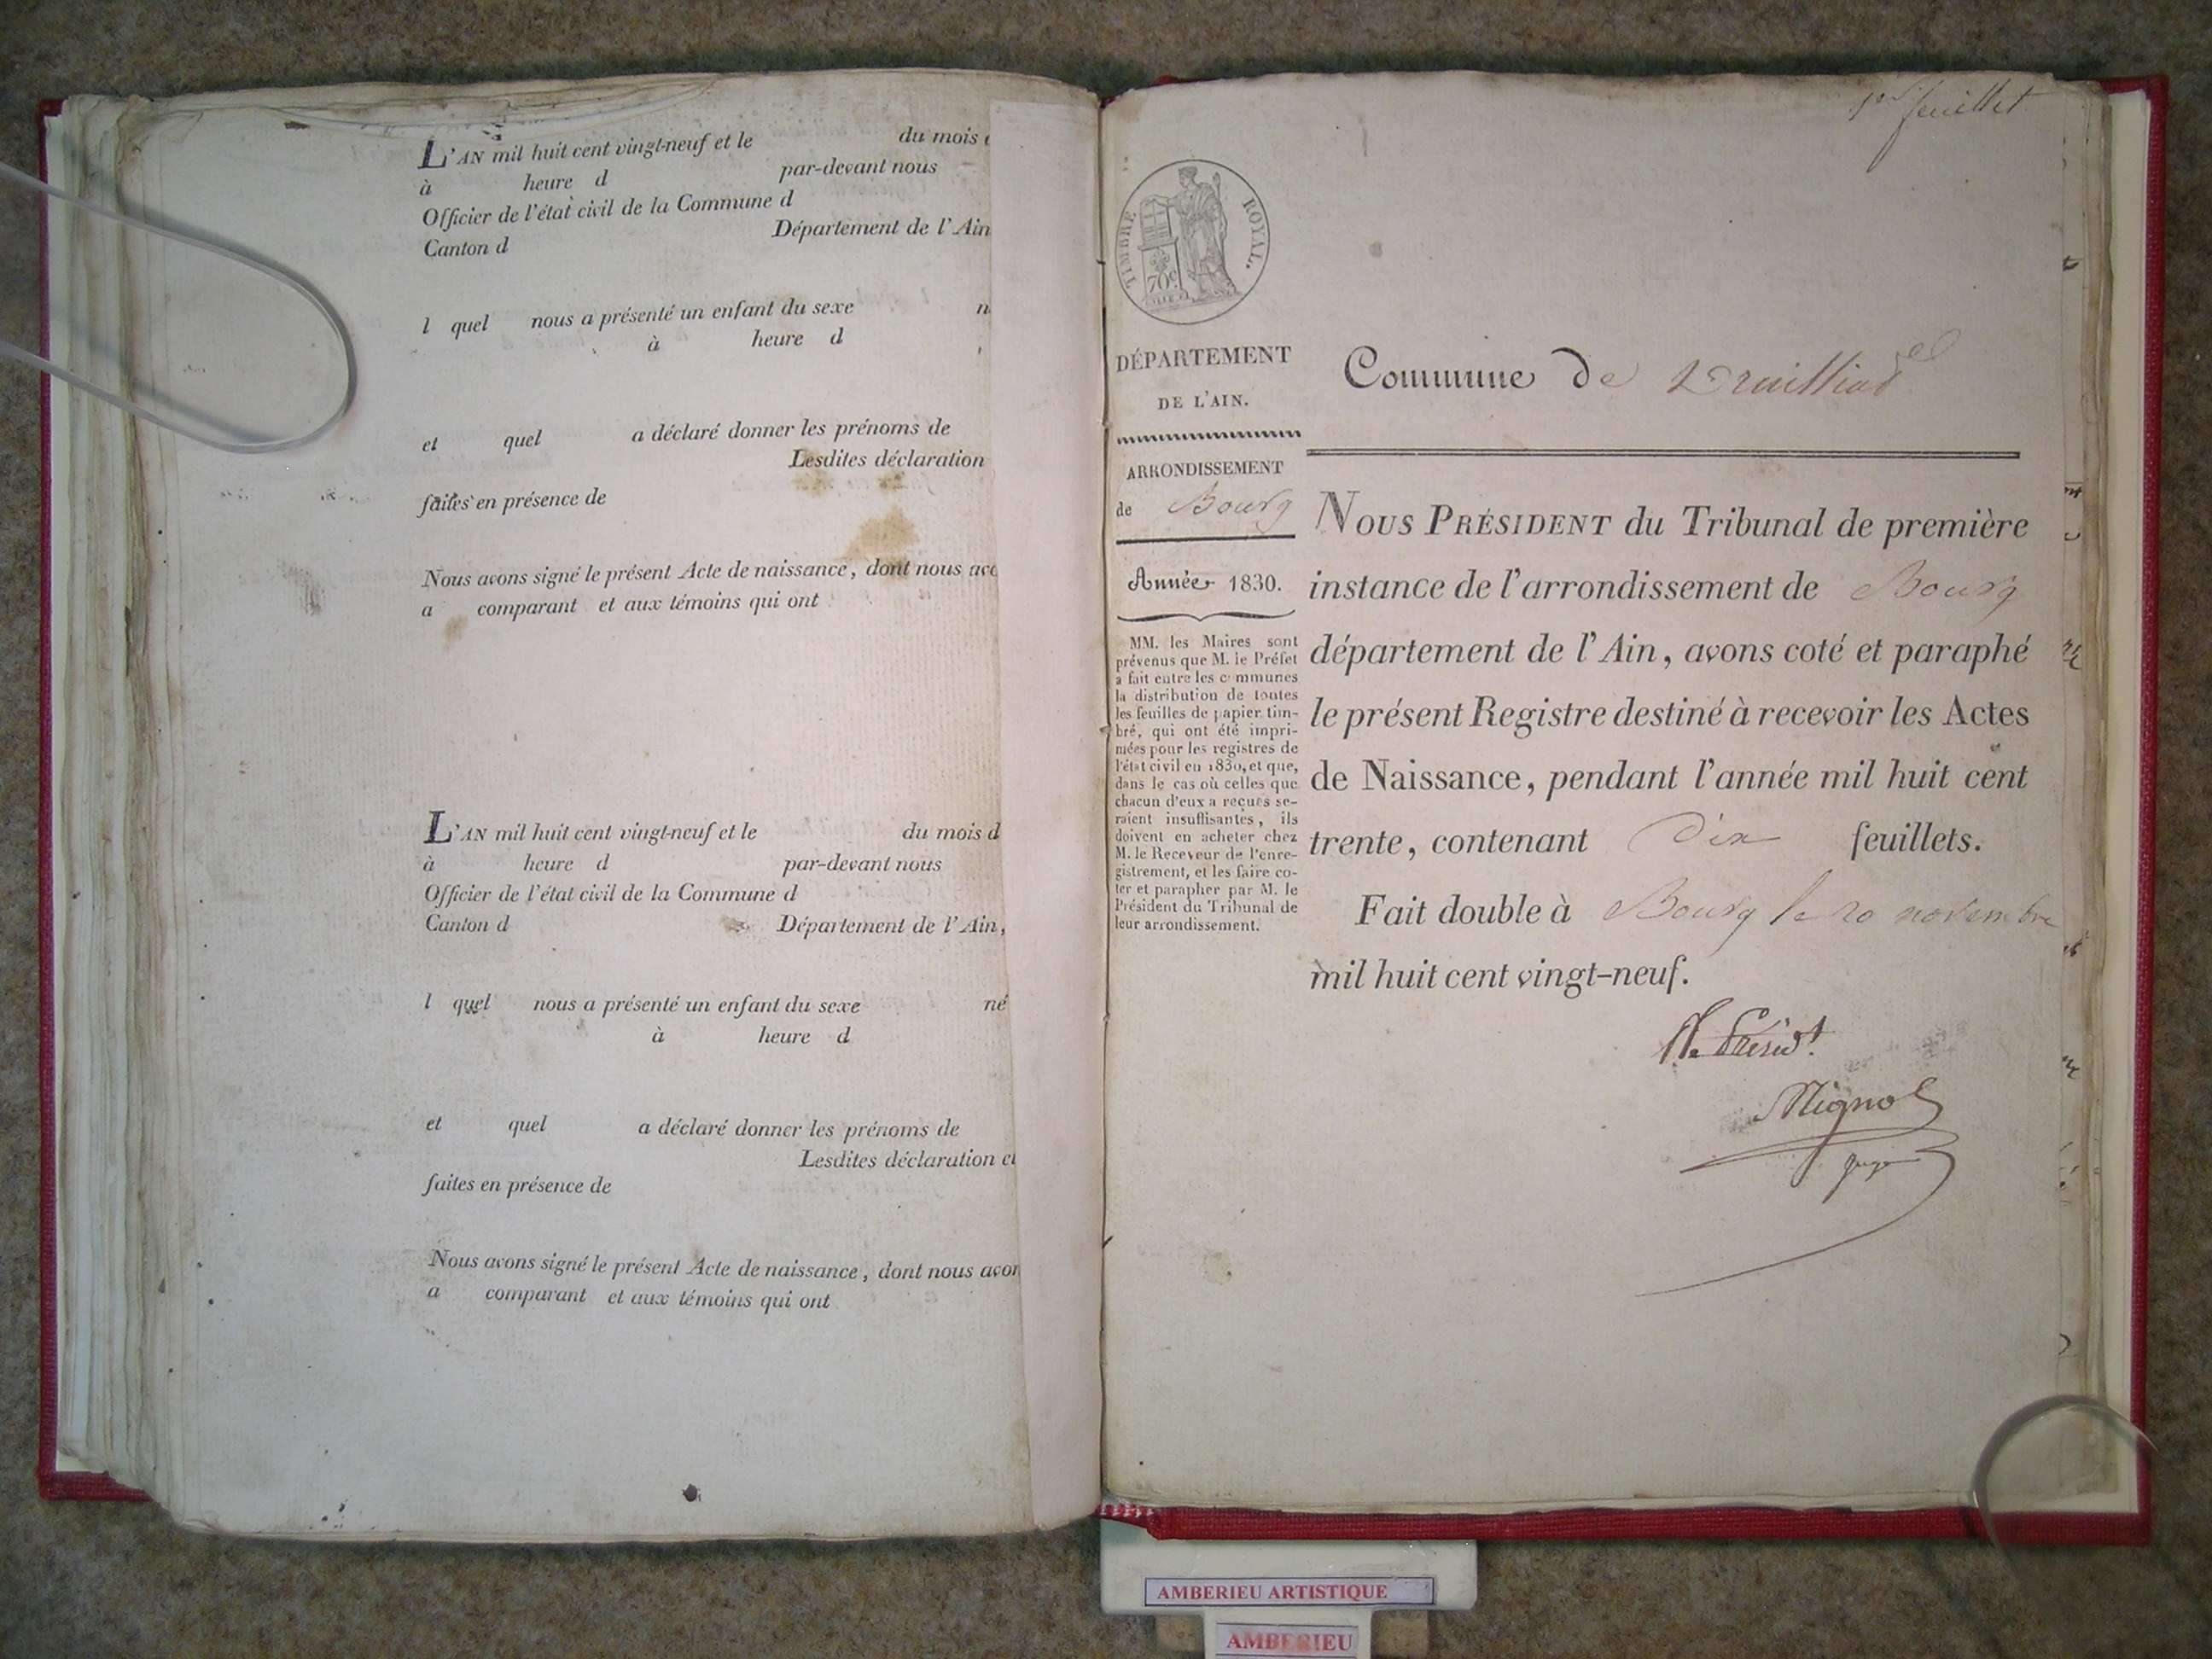 L'AN mil huit cent vingt-neuf et le du mois
à heure d par-devant nous
Officier de l'état civil de la Commune d
Canton d Département de l'Ain
l quel nous a présenté un enfant du sexe n
à heure d
et quel a déclaré donner les prénoms de
Lesdites déclaration
faites en présence de
Nous avons signé le présent Acte de naissance, dont nous avo
a comparant et aux témoins qui ont
L'AN mil huit cent vingt-neuf et le du mois d
à heure d par-devant nous
Officier de l'état civil de la Commune d
Canton d Département de l'Ain,
l quel nous a présenté un enfant du sexe né
à heure d
et quel a déclaré donner les prénoms de
Lesdites déclaration et
faites en présence de
Nous avons signé le présent Acte de naissance, dont nous avon
a comparant et aux témoins qui ont
1er feuillet
TIMBRE ROYAL.
70c
DÉPARTEMENT
DE L'AIN.
ARRONDISSEMENT
de Bourg
Année 1830.
MM. les Maires sont
prévenus que M. le Préfet
a fait entre les c mmunes
la distribution de toutes
les feuilles de papier tim-
bré, qui ont été impri-
mées pour les registres de
l'état civil en 1830, et que,
dans le cas où celles que
chacun d'eux a reçues se-
raient insuffisantes, ils
doivent en acheter chez
M. le Receveur de l'enre-
gistrement, et les faire co-
ter et parapher par M. le
Président du Tribunal de
leur arrondissement.
Commune de Druilliad
NOUS PRÉSIDENT du Tribunal de première
instance de l'arrondissement de Bourg
département de l'Ain, avons coté et paraphé
le présent Registre destiné à recevoir les Actes
de Naissance, pendant l'année mil huit cent
trente, contenant dix feuillets.
Fait double à Bourg le 20 novembre
mil huit cent vingt-neuf.
P. le Présidt.
Mignot
juge
AMBERIEU ARTISTIQUE
AMBERIEU